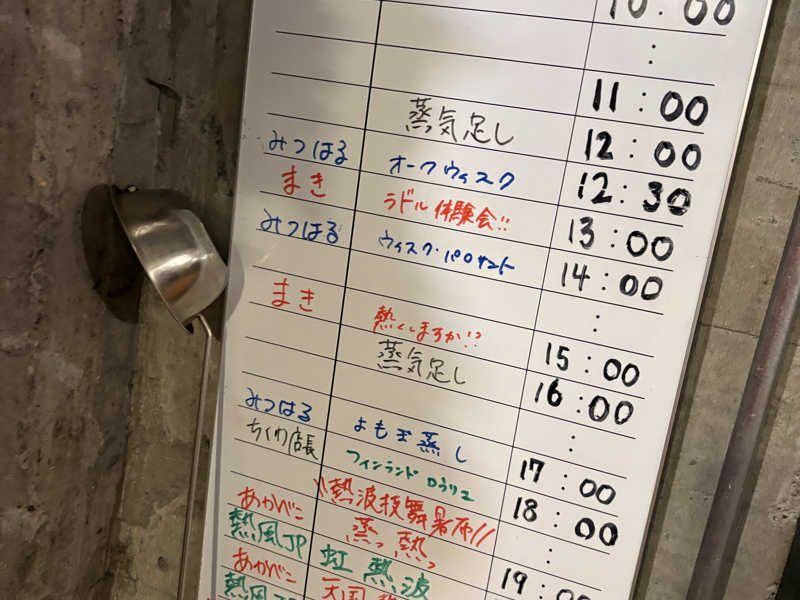 10:00
:
11:00
蒸気足し 12:00
みつはる オークウィスク 12:30
まき ラドル体験会!! 13:00
みつはる ウィスク・パロサント 14:00
:
まき 熱くしますか!? 15:00
蒸気足し 16:00
:
みつはる よもぎ蒸し 17:00
ちくわ店長 フィンランド ロウリュ 18:00
あかべこ \\熱波 // :
熱風JP 蒸っ熱っ 19:00
あかべこ 虹熱波
熱風 天国